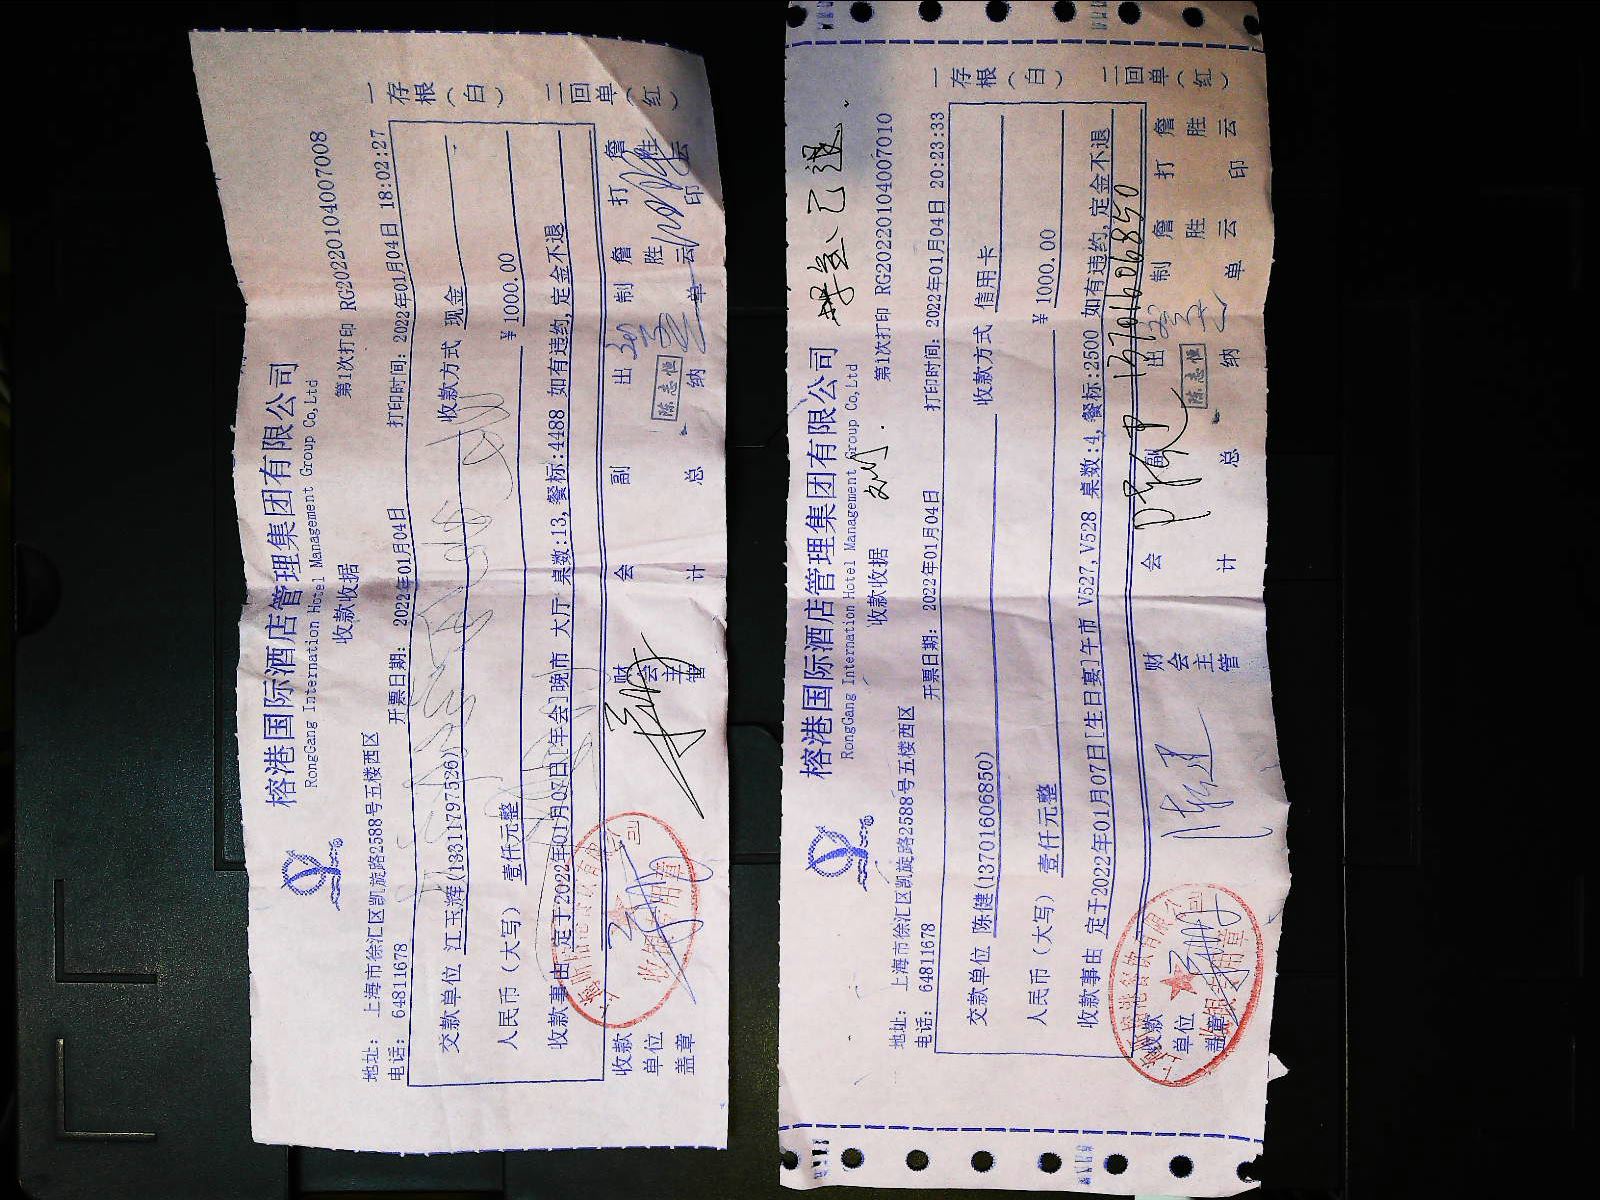 榕港国际酒店管理集团有限公司
RongGang International Hotel Management Group Co,Ltd
收款收据
第1次打印 RG20220104007008
地址： 上海市徐汇区凯旋路2588号五楼西区
电话： 64811678
开票日期： 2022年01月04日
打印时间：2022年01月04日 18:02:27
一存根（白） 二回单（红）
交款单位 江玉辉(13311797526)
收款方式 现金
人民币（大写） 壹仟元整
￥1000.00
收款事由 定于2022年01月07日[年会]晚市 大厅 桌数:13,餐标:4488 如有违约,定金不退
收款单位盖章
财会主管
会计
副总
出纳
陈志恒
制单
詹胜云
打印
詹胜云
榕港国际酒店管理集团有限公司
RongGang International Hotel Management Group Co,Ltd
收款收据
第1次打印 RG20220104007010
地址： 上海市徐汇区凯旋路2588号五楼西区
电话： 64811678
开票日期： 2022年01月04日
打印时间：2022年01月04日 20:23:33
一存根（白） 二回单（红）
交款单位 陈健(13701606850)
收款方式 信用卡
人民币（大写） 壹仟元整
￥1000.00
收款事由 定于2022年01月07日[生日宴]午市 V527,V528 桌数:4,餐标:2500 如有违约,定金不退
13701606850
收款单位盖章
财会主管
会计
副总
出纳
陈志恒
制单
詹胜云
打印
詹胜云